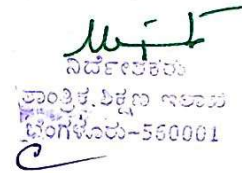 ನಿರ್ದೇಶಕರು
ತಾಂತ್ರಿಕ ಶಿಕ್ಷಣ ಇಲಾಖೆ
ಬೆಂಗಳೂರು-560001